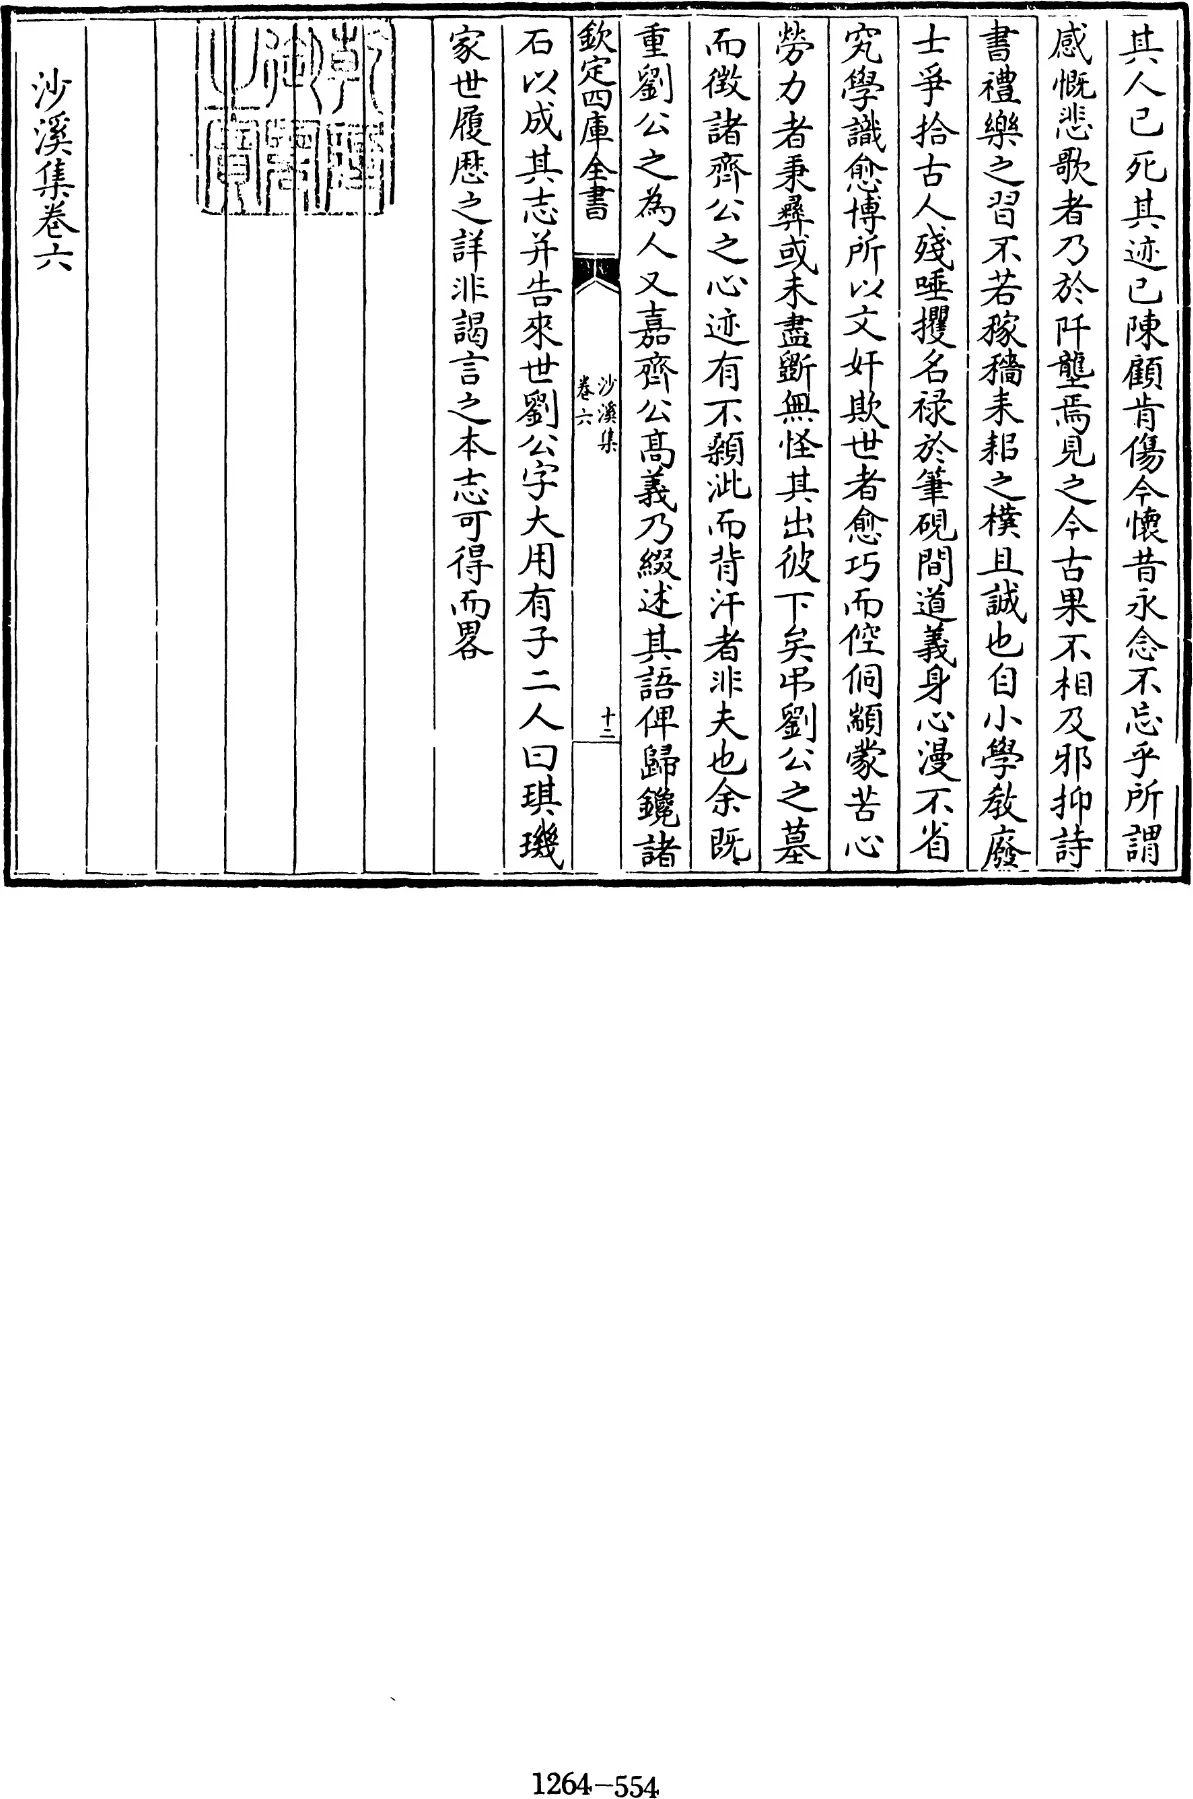 其人已死其迹已陳顧肯傷今懷昔永念不忘乎所謂
感慨悲歌者乃於阡壟焉見之今古果不相及邪抑詩
書禮樂之習不若稼穡耒耜之樸且誠也自小學教廢
士爭拾古人殘唾攫名禄於筆硯間道義身心漫不省
究學識愈博所以文奸欺世者愈巧而倥侗顓蒙苦心
勞力者秉彞或未盡斲無怪其出彼下矣弔劉公之墓
而徴諸齊公之心迹有不顙泚而背汗者非夫也余既
重劉公之為人又嘉齊公髙義乃綴述其語俾歸鑱諸
欽定四庫全書
沙溪集
卷六
十二
石以成其志并告來世劉公字大用有子二人曰琪璣
家世履歴之詳非謁言之本志可得而畧
乾隆
御覽
之寶
沙溪集卷六
1264-554